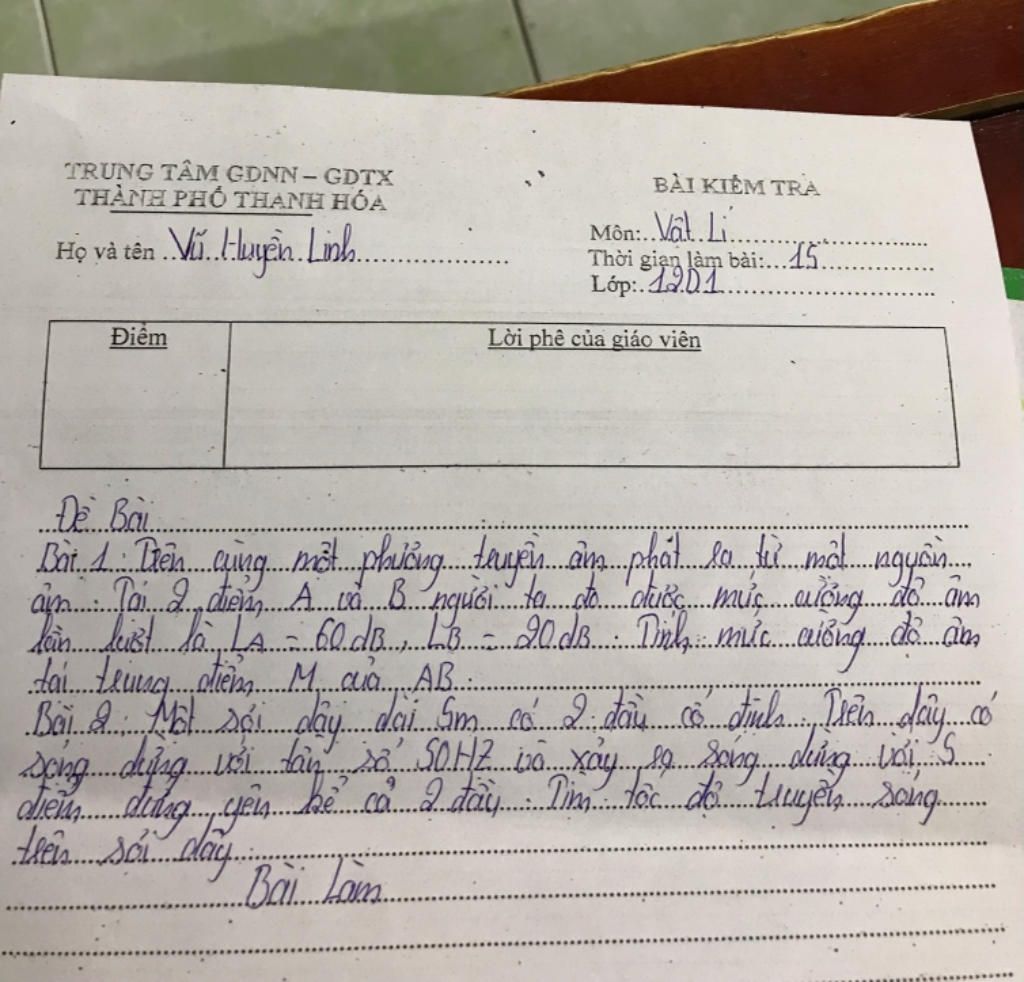 TRUNG TÂM GDNN – GDTX
THÀNH PHỐ THANH HÓA
BÀI KIỂM TRA
Họ và tên Vũ Huyền Linh
Môn: Vật Lí
Thời gian làm bài: 15
Lớp: 12D1
Điểm
Lời phê của giáo viên
Đề Bài
Bài 1: Trên cùng một phương truyền âm phát ra từ một nguồn
âm. Tại 2 điểm A và B người ta đo được mức cường độ âm
lần lượt là LA = 60 dB, LB = 20 dB. Tính mức cường độ âm
tại trung điểm M của AB.
Bài 2: Một sợi dây dài 5m có 2 đầu cố định. Trên dây có
sóng dừng với tần số 50HZ và xảy ra sóng dừng với 5
điểm đứng yên kể cả 2 đầu. Tìm tốc độ truyền sóng
trên sợi dây.
Bài Làm